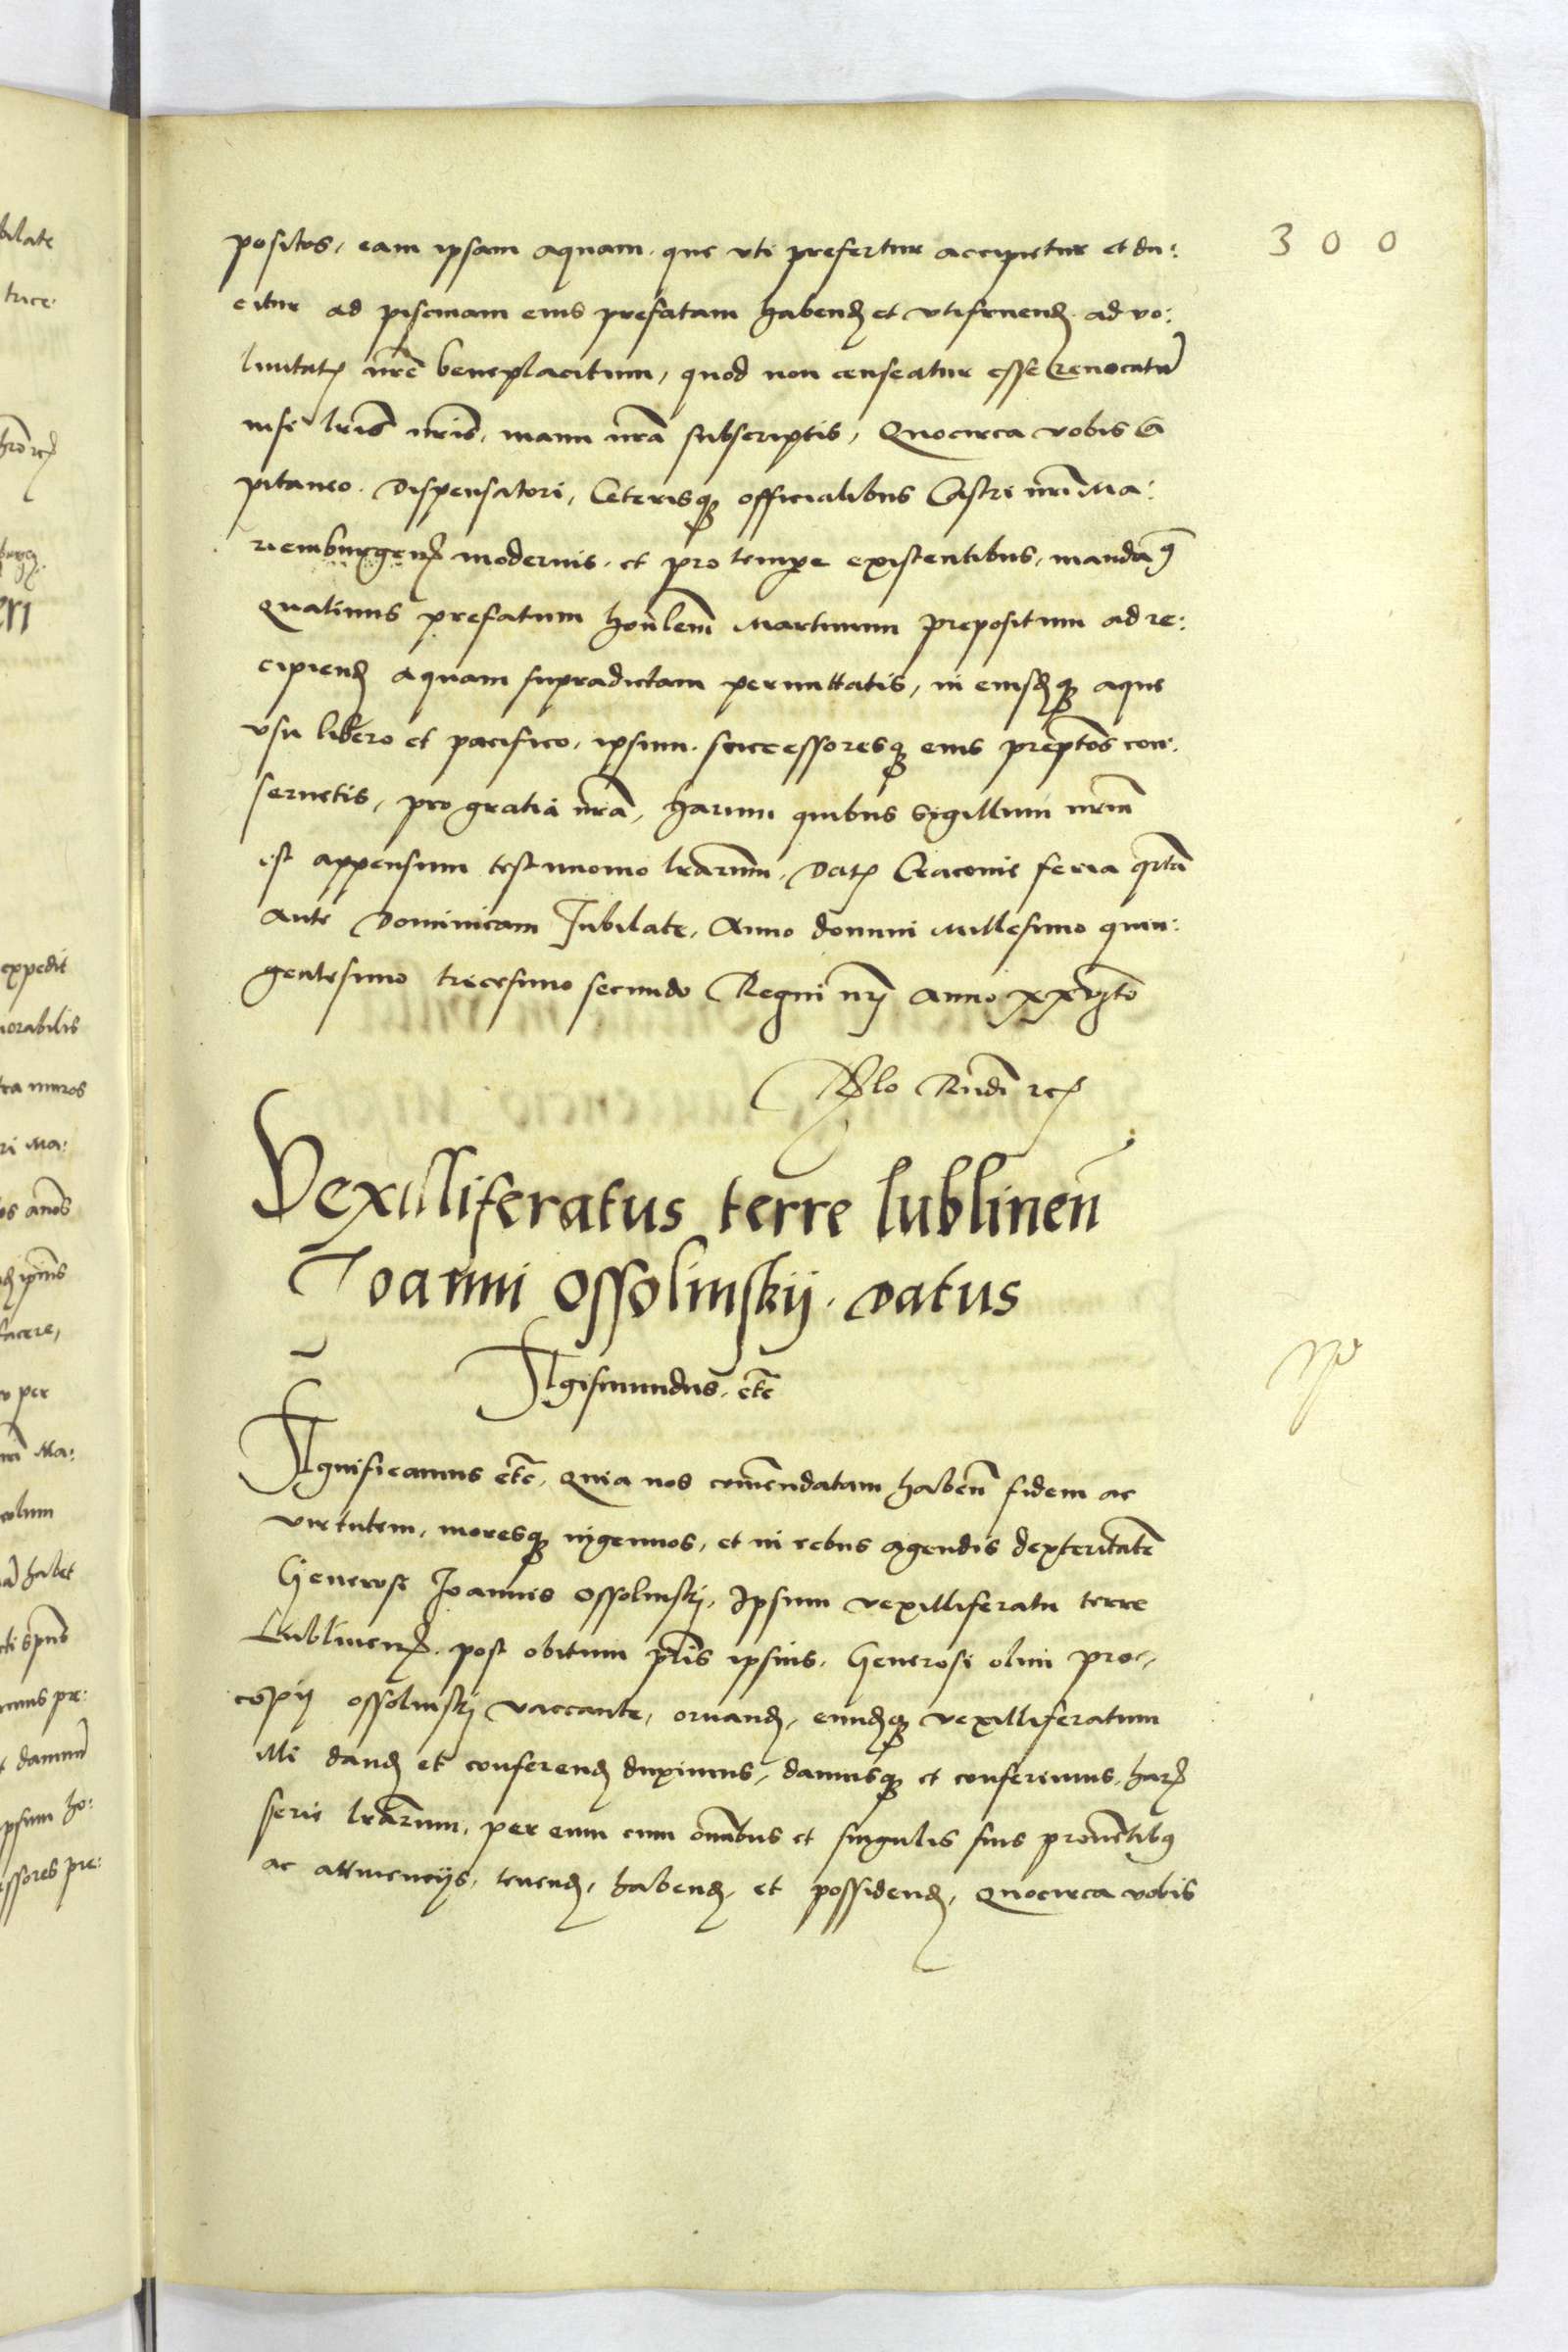 300
positos, eam ipsam aquam, que vti prefertur accipietur et du:
citur ad piscinam eius prefatam habend et vtifruend ad vo:
luntatis nre beneplacitum, quod non censeatur esse reuocatu
nisi lris nris, manu nra subscriptis, Quocirca vobis Ca
pitaneo. Dispensatori, Ceterisq officialibus Castri nri Ma:
riemburgen modernis, et pro tempe existentibus, mandam9
quatinus prefatum honlem Martinum prepositum ad re:
cipiend aquam supradictam permittatis, in eiusdq aque
vsu libero et pacifico, ipsum, successoresq eius preptos con:
seruetis, pro gratia nra, harum quibus sigillum nrm
est appensum testimonio lrarum, Dat Cracouie feria qrta
ante Dominicam Jubilate, Anno domini Millesimo quin:
gentesimo tricesimo secundo Regni nrj anno xxvjto
Rndi
Vexilliferatus terre lublinen
Joanni Ossolinskij. Datus
Sigismundus, etc
Significamus etc, Quia nos comendatam haben fidem ac
virtutem, moresq ingenuos, et in rebus agendis dexteritate
Generosi Joannis Ossolinskj, Ipsum vexilliferatu terre
Lublinen. post obitum pris ipsius, Generosi olim pro-
copij Ossolinskj vaccante, ornand, eundq vexilliferatum
illi dand et conferend duximus, damusq et conferimus, har
serie lrarum, per eum cum omibus et singulis suis prouentib9
ac attinencijs, tenend, habend, et possidend, Quocirca vobis